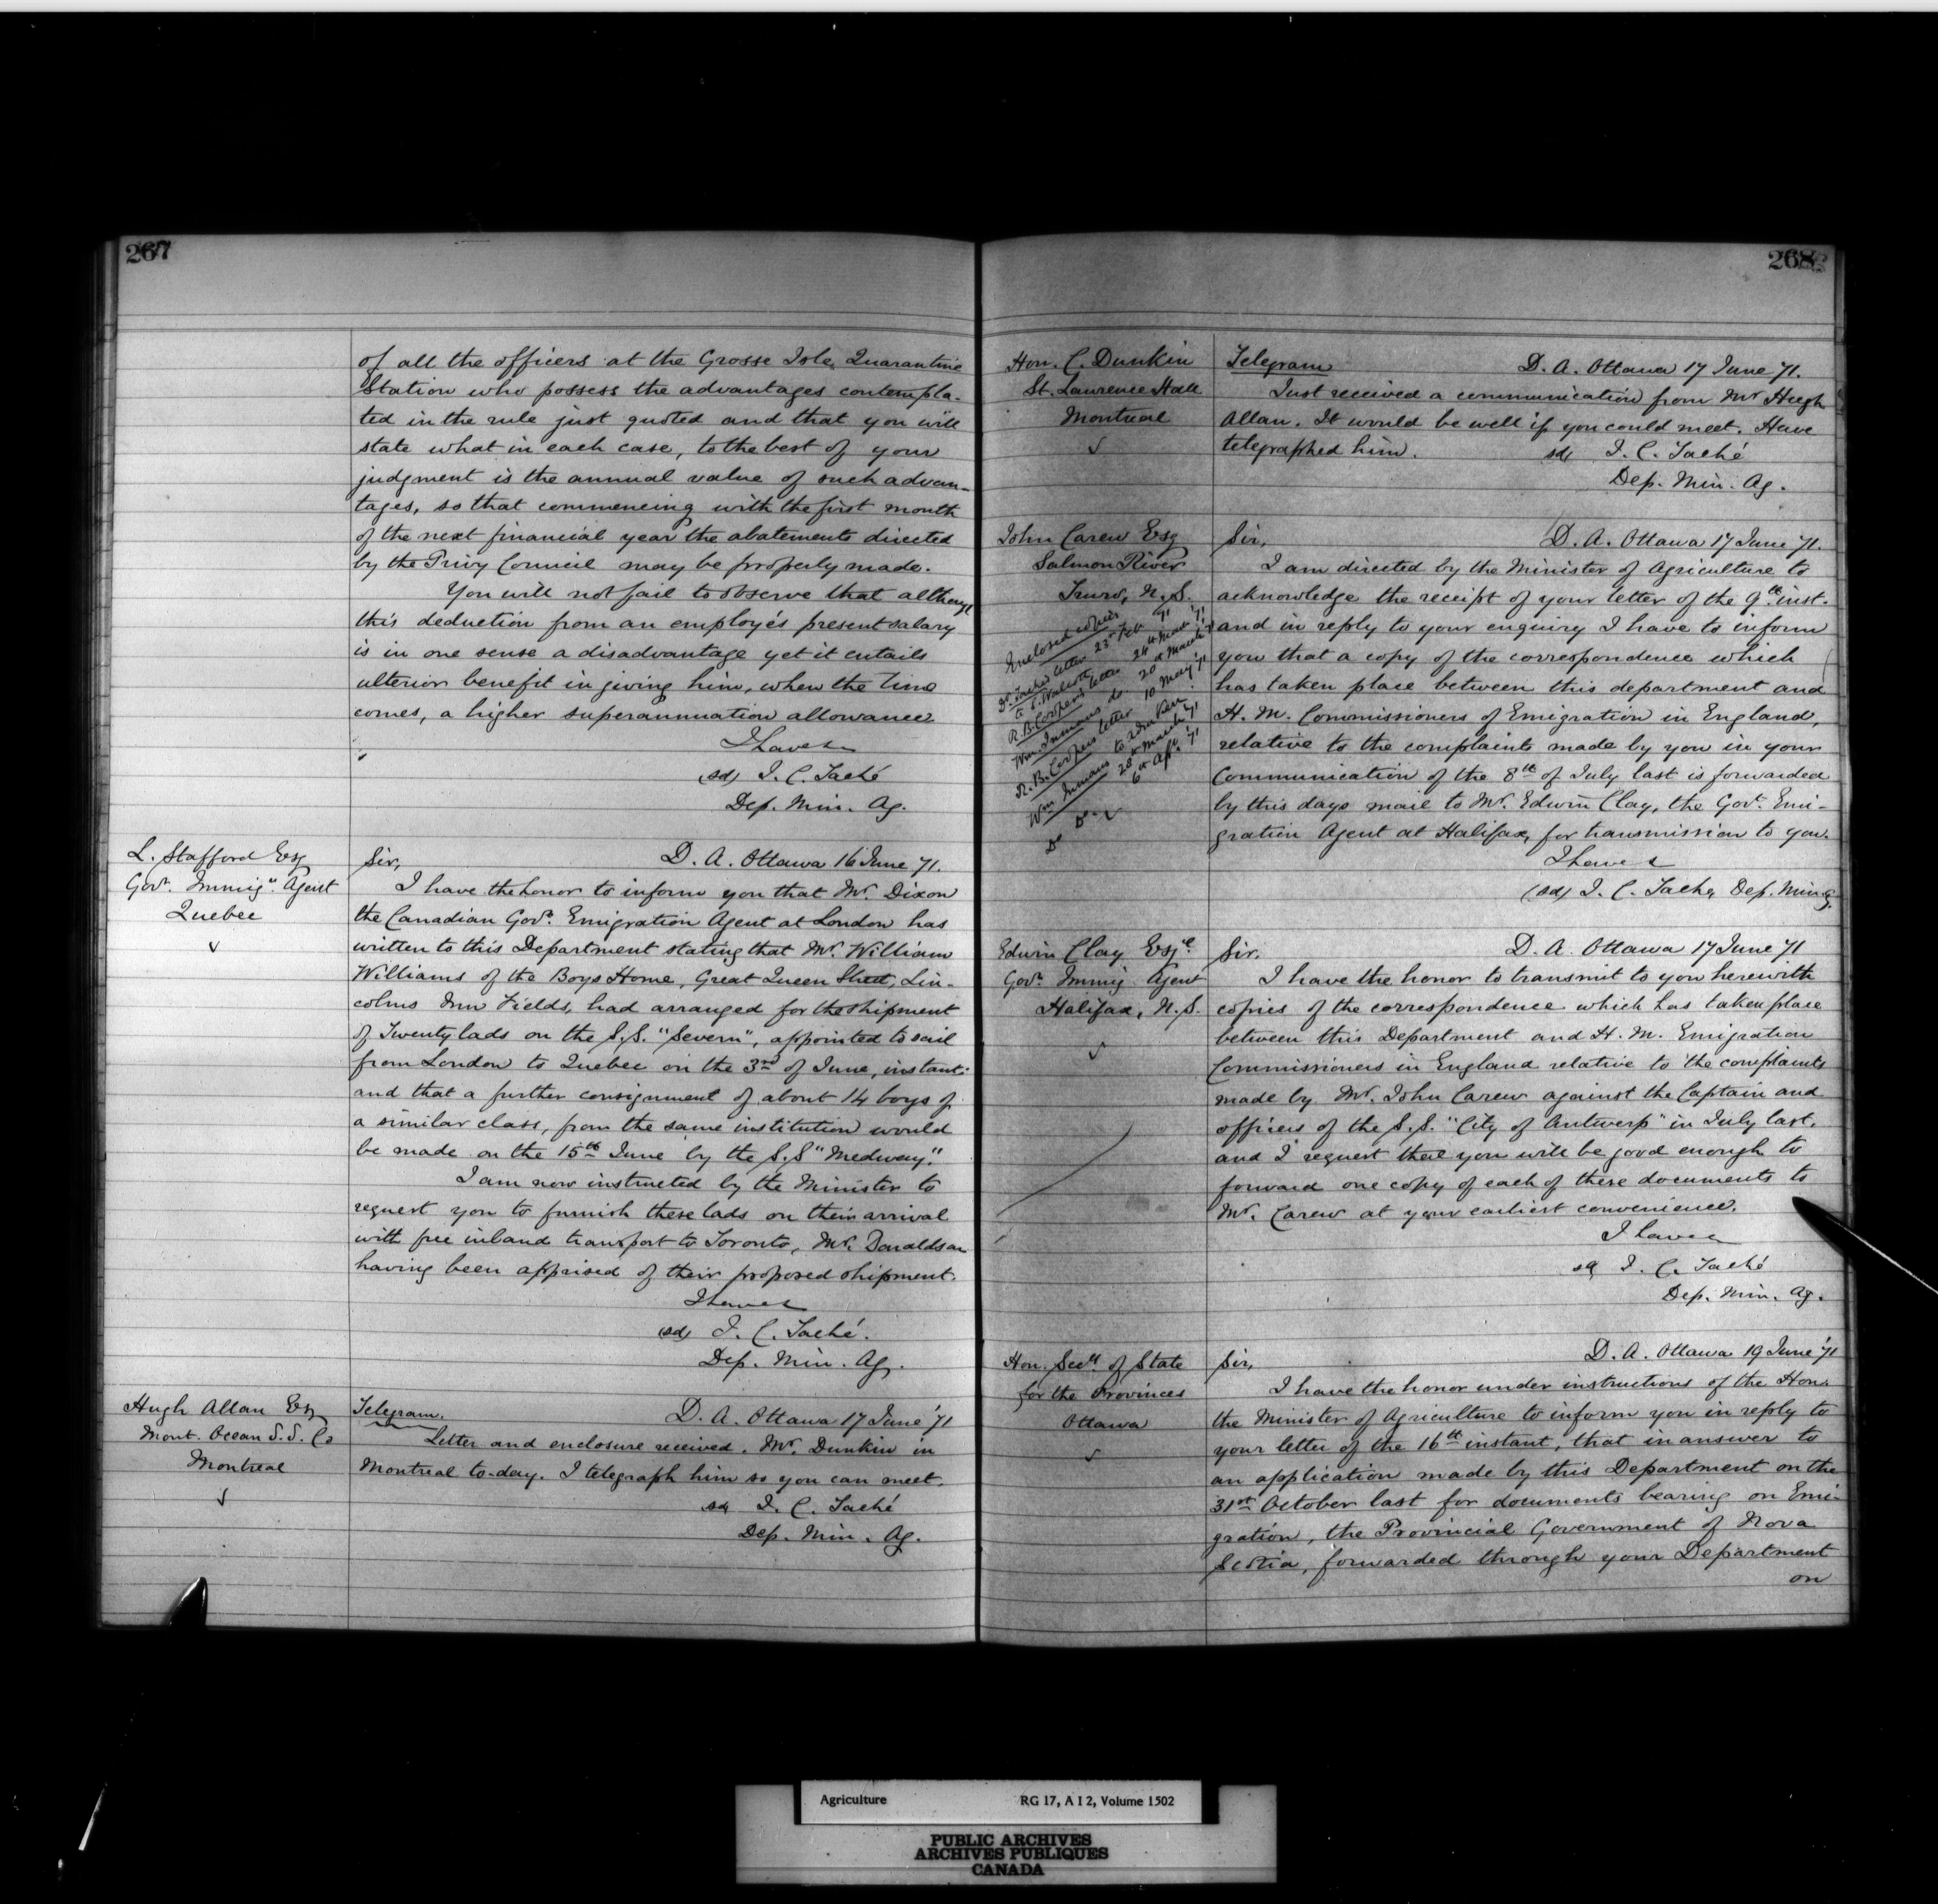 267
of all the officers at the Grosse Isle, Quarantine
Station who possess the advantages contempla-
ted in the rule just quoted and that you will
state what in each case, to the best of your
judgment is the annual value of such advan-
tages, so that commencing with the first month
of the next financial year the abatements directed
by the Privy Council may be properly made.
You will not fail to observe that although
this deduction from an employé's present salary
is in one sense a disadvantage yet it entails
ulterior benefit in giving him, when the time
comes, a higher superannuation allowance.
I have &
(sd) J. C. Taché
Dep. Min. Ag.
L. Stafford Esq
Govt. Immign. Agent
Quebec
Sir, D. A. Ottawa 16 June '71.
I have the honor to inform you that Mr. Dixon
the Canadian Govt. Emigration Agent at London has
written to this Department stating that Mr. William
Williams of the Boys Home, Great Queen Street, Lin-
colns Inn Fields, had arranged for the shipment
of Twenty lads on the S.S. "Severn", appointed to sail
from London to Quebec on the 3rd of June, instant.
and that a further consignment of about 14 boys of
a similar class, from the same institution would
be made on the 15th June by the S.S "Medway".
I am now instructed by the Minister to
request you to furnish these lads on their arrival
with free inland transport to Toronto, Mr. Donaldson
having been apprised of their proposed shipment.
I have &
(sd) J. C. Taché.
Dep. Min. Ag.
Hugh Allan Esq
Mont. Ocean S.S. Co
Montreal
Telegram. D. A. Ottawa 17 June '71
Letter and enclosure received. Mr. Dunkin in
Montreal to-day. I telegraph him so you can meet.
sd J. C. Taché
Dep. Min. Ag.
268
Hon. C. Dunkin
St. Lawrence Hall
Montreal
Telegram D. A. Ottawa 17 June '71.
Just received a communication from Mr Hugh
Allan. It would be well if you could meet. Have
telegraphed him. sd J. C. Taché
Dep. Min. Ag.
John Carew Esq
Salmon River
Truro, N.S.
Enclosed copies
Dr. Taché's letter 23rd Feb '71
to S. Walcott
R.B. Cooper's letter 24th March '71
Wm. Inmans do. 20th March '71
R.B. Coopers letter 10 May '71
Wm Inmans 28th March '71
Do Do 6th Apl. '71
Sir, D. A. Ottawa 17 June '71.
I am directed by the Minister of Agriculture to
acknowledge the receipt of your letter of the 9th inst.
and in reply to your enquiry I have to inform
you that a copy of the correspondence which
has taken place between this department and
H. M. Commissioners of Emigration in England,
relative to the complaints made by you in your
Communication of the 8th of July last is forwarded
by this days mail to Mr. Edwin Clay, the Govt. Emi-
gration Agent at Halifax, for transmission to you.
I have &
(sd) J. C. Taché, Dep. Min. Ag.
Edwin Clay Esqe.
Govt. Immig. Agent
Halifax, N.S.
Sir. D. A. Ottawa 17 June '71
I have the honor to transmit to you herewith
copies of the correspondence which has taken place
between this Department and H. M. Emigration
Commissioners in England relative to the complaints
made by Mr. John Carew against the Captain and
officers of the S.S. "City of Antwerp" in July last.
and I request that you will be good enough to
forward one copy of each of these documents to
Mr. Carew at your earliest convenience.
I have &
sd J. C. Taché
Dep. Min. Ag.
Hon. Secy. of State
for the Provinces
Ottawa
Sir, D. A. Ottawa 19 June '71
I have the honor under instructions of the Hon.
the Minister of Agriculture to inform you in reply to
your letter of the 16th instant, that in answer to
an application made by this Department on the
31st October last for documents bearing on Emi-
gration, the Provincial Government of Nova
Scotia, forwarded through your Department
on
Agriculture RG 17, A I 2, Volume 1502
PUBLIC ARCHIVES
ARCHIVES PUBLIQUES
CANADA